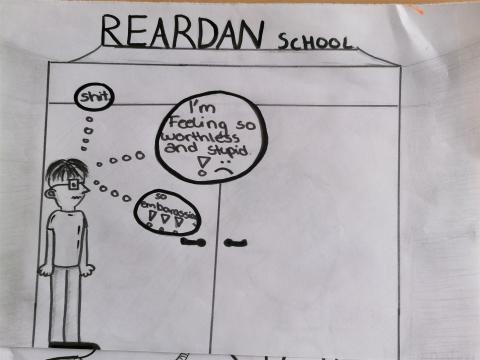 REARDAN SCHOOL
shit.
I'm
Feeling so
worthless
and stupid.
! :(
so
embarassing
!!!